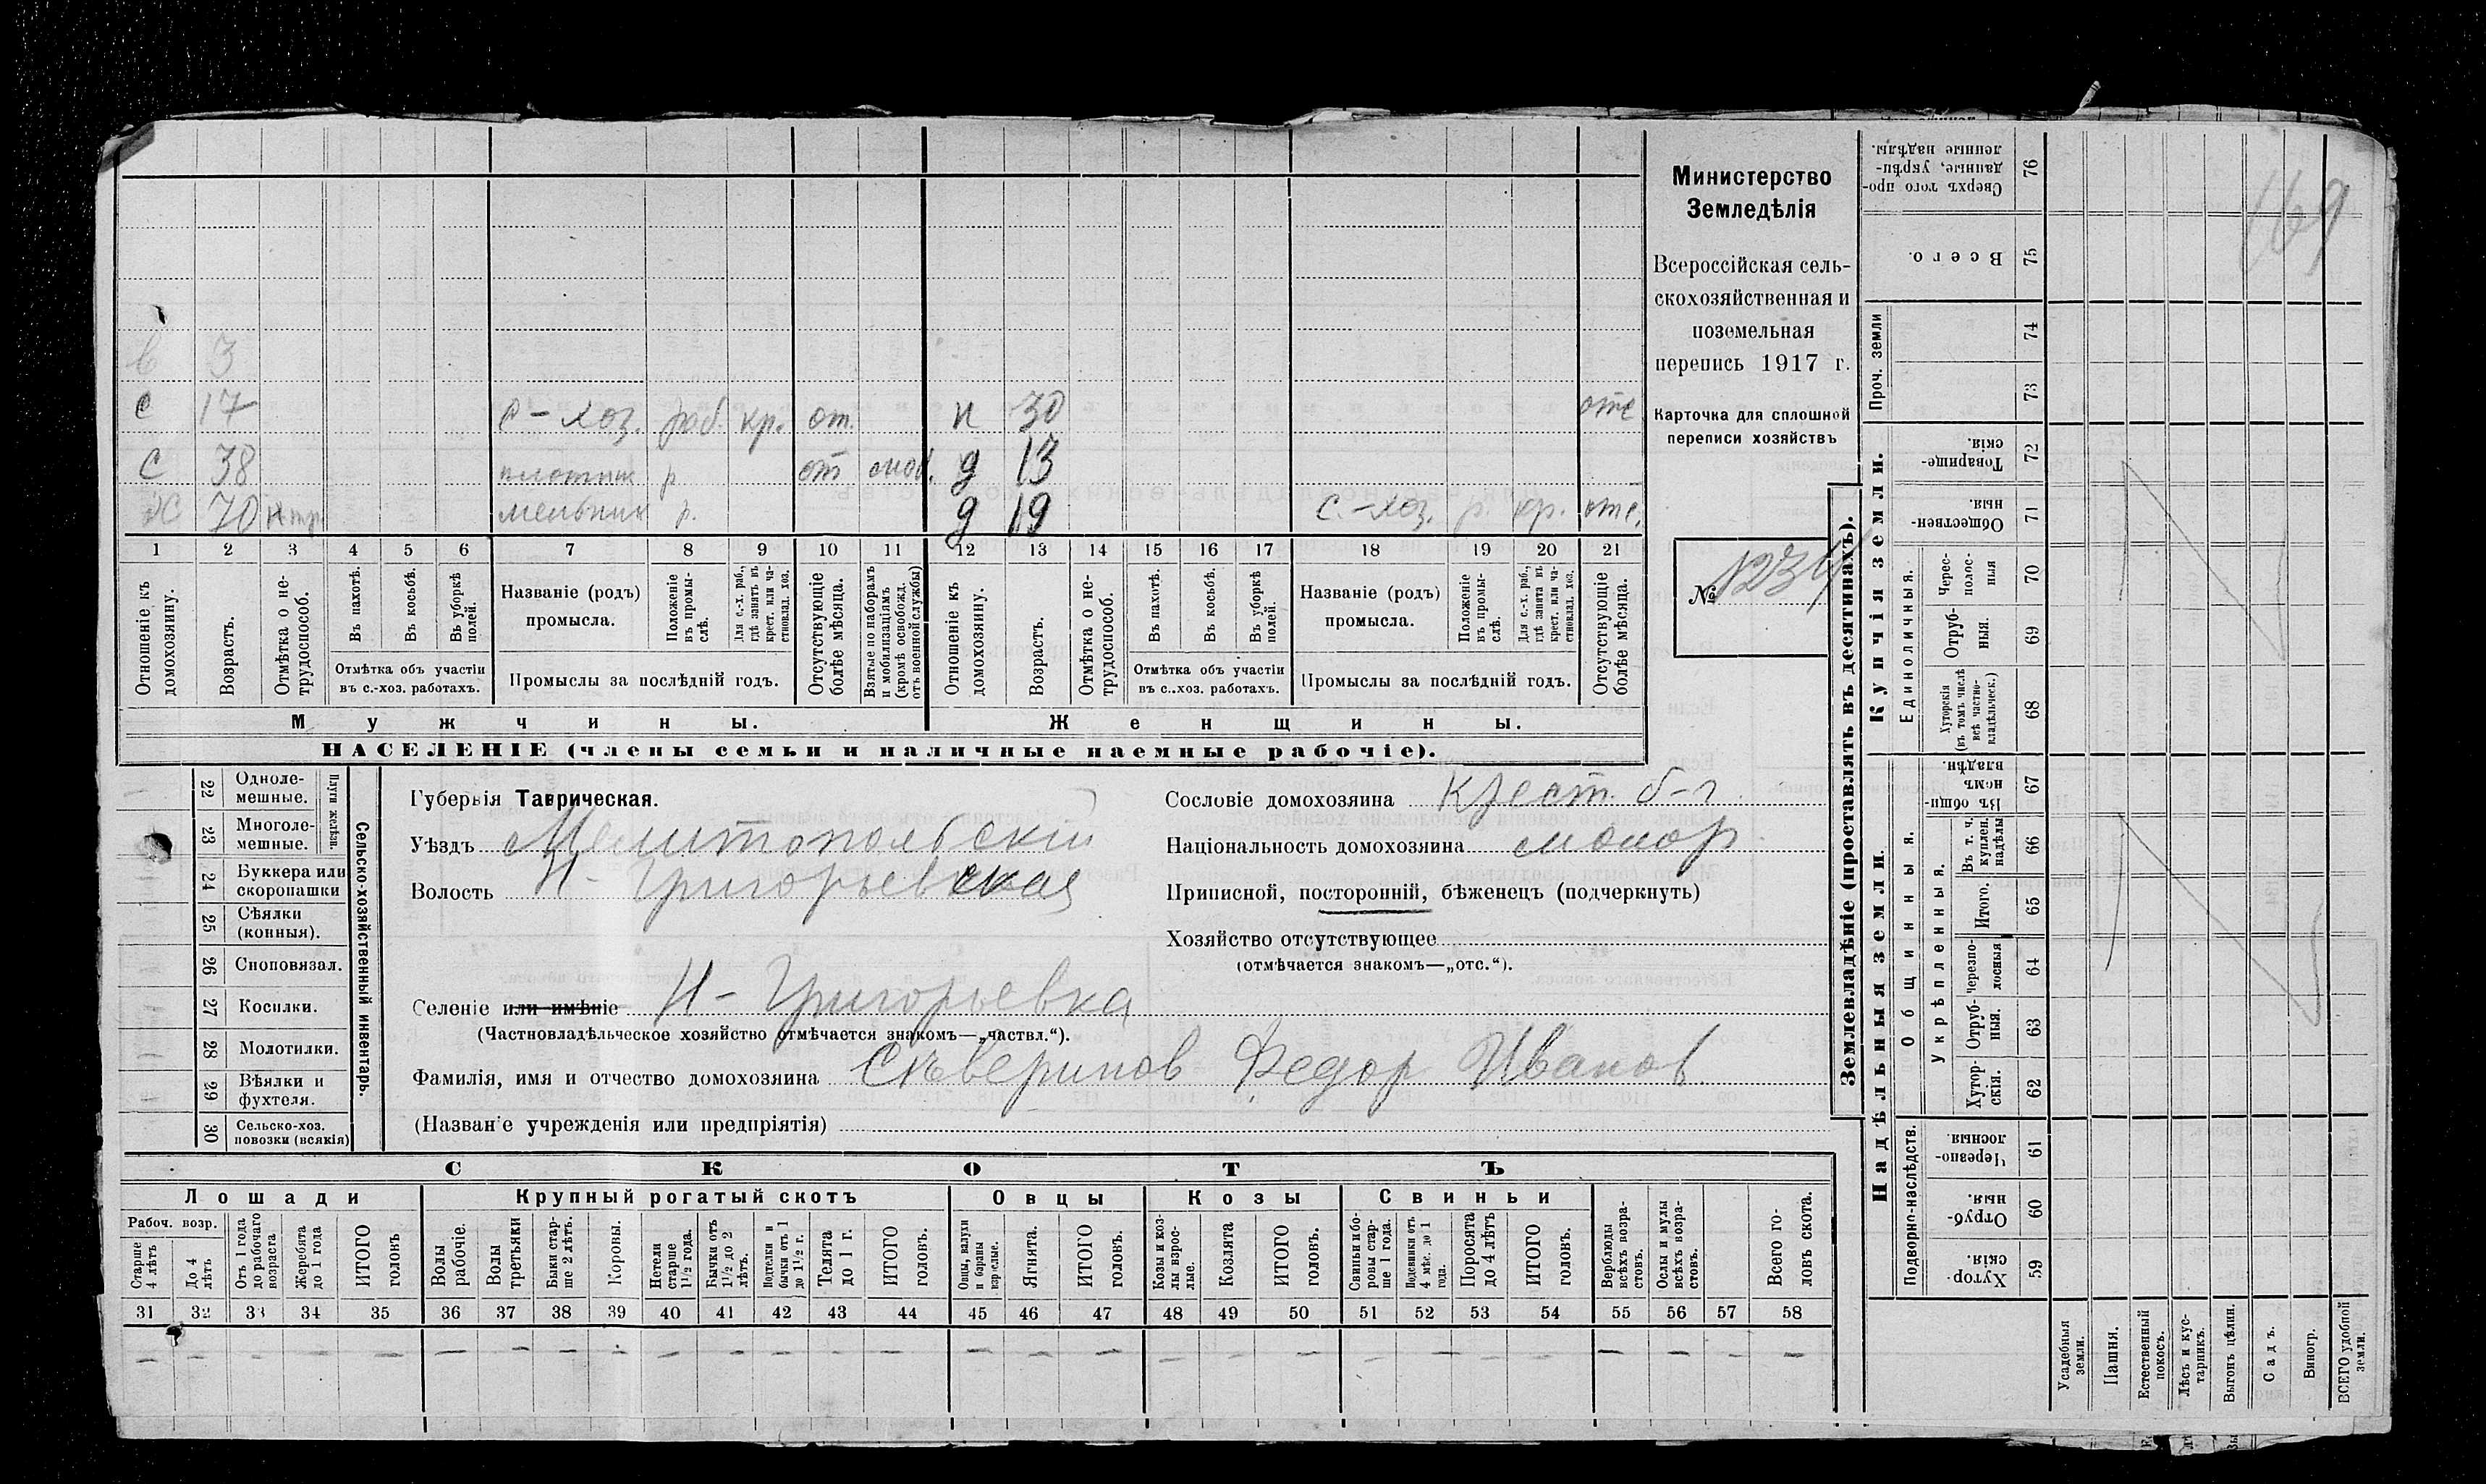 в 3
с 17 с-хоз. раб. кр. от. н 30 отс
с 38 плотник р от моб. д 13
х 70 мельник р. д 19 с.-хоз. р. кр. отс.
1 2 3 4 5 6 7 8 9 10 11 12 13 14 15 16 17 18 19 20 21
Отношеніе къ домохозяину.
Возрастъ.
Отмѣтка о нетрудоспособ.
Въ пахотѣ.
Въ косьбѣ.
Въ уборкѣ полей.
Отмѣтка объ участіи
въ с.-хоз. работахъ.
Названіе (родъ)
промысла.
Положеніе въ промыслѣ.
Для с.-х. раб., гдѣ занятъ въ крест. или частновлад. хоз.
Промыслы за послѣдній годъ.
Отсутствующіе болѣе мѣсяца.
Взятые по наборамъ и мобилизаціямъ (кромѣ освобожд. отъ военной службы)
Отношеніе къ домохозяину.
Возрастъ.
Отмѣтка о нетрудоспособ.
Въ пахотѣ.
Въ косьбѣ.
Въ уборкѣ полей.
Отмѣтка объ участіи
въ с..хоз. работахъ.
Названіе (родъ)
промысла.
Положеніе въ промыслѣ.
Для с.-х. раб., гдѣ занята въ крест. или частновлад. хоз.
Промыслы за послѣдній годъ.
Отсутствующіе болѣе мѣсяца.
Мужчины.
Женщины.
НАСЕЛЕНІЕ (члены семьи и наличные наемные рабочіе).
Министерство
Земледѣлія
Всероссійская сель-
скохозяйственная и
поземельная
перепись 1917 г.
Карточка для сплошной
переписи хозяйствъ
№ 1234
22 Однолемешные.
23 Многолемешные.
Плуги желѣзн.
24 Буккера или скоропашки
25 Сѣялки (конныя).
26 Сноповязал.
27 Косилки.
28 Молотилки.
29 Вѣялки и фухтеля.
30 Сельско-хоз. повозки (всякія)
Сельско-хозяйственный инвентарь.
Губернія Таврическая.
Уѣздъ Мелитопольскій
Волость Н-Григорьевская
Селеніе или имѣніе Н-Григорьевка
(Частновладѣльческое хозяйство отмѣчается знакомъ—„частвл.“).
Фамилія, имя и отчество домохозяина Скверинов Федор Иванов
(Названіе учрежденія или предпріятія)
Сословіе домохозяина Крест. б-г
Національность домохозяина малор.
Приписной, посторонній, бѣженецъ (подчеркнуть)
Хозяйство отсутствующее
(отмѣчается знакомъ—„отс.“).
СКОТЪ
Лошади
Рабоч. возр.
Старше 4 лѣтъ
До 4 лѣтъ
Отъ 1 года до рабочаго возраста
Жеребята до 1 года
ИТОГО головъ
Крупный рогатый скотъ
Волы рабочіе.
Волы третьяки
Быки старше 2 лѣтъ.
Коровы.
Нетели старше 1½ года.
Бычки отъ 1½ до 2 лѣтъ.
Подтелки и бычки отъ 1 до 1½ г.
Телята до 1 г.
ИТОГО головъ.
Овцы
Овцы, валухи и бараны взрослые.
Ягнята.
ИТОГО головъ.
Козы
Козы и козлы взрослые.
Козлята
ИТОГО головъ.
Свиньи
Свиньи и боровы старше 1 года.
Подсвинки отъ 4 мѣс. до 1 года.
Поросята до 4 лѣтъ
ИТОГО головъ.
Верблюды всѣхъ возрастовъ.
Ослы и мулы всѣхъ возрастовъ.
Всего головъ скота.
31 32 33 34 35 36 37 38 39 40 41 42 43 44 45 46 47 48 49 50 51 52 53 54 55 56 57 58
– – – – – – – – – – – – – – – – – – – – – – – – – – – –
Землевладѣніе (проставлять въ десятинахъ).
169
Сверхъ того проданные, укрѣпленные надѣлы. 76
Всего. 75
Проч. земли
74
73
Купчія земли.
Товарищескія. 72
Общественныя 71
Единоличныя.
Чересполосныя 70
Отрубныя. 69
Хуторскія (въ томъ числѣ всѣ частновладѣльческ.) 68
Надѣльныя земли.
Общинныя.
Въ общинномъ владѣн. 67
Укрѣпленныя.
Въ т. ч. куплен. надѣлы 66
Итого. 65
Черезполосныя 64
Отрубныя. 63
Хуторскія. 62
Подворно-наслѣдств.
Черезполосныя. 61
Отрубныя. 60
Хуторскія. 59
Усадебныя земли.
Пашня.
Естественный покосъ.
Лѣсъ и кустарникъ.
Выгонъ цѣлин.
Садъ.
Виногр.
ВСЕГО удобной земли.